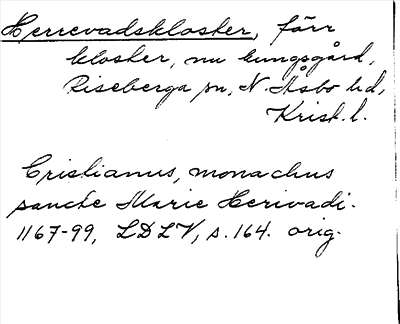 Herrevadskloster, förr
kloster, nu kungsgård,
Riseberga sn, N. Åsbo hd,
Krist. l.
Cristianus, monachus
sancte Marie Herivadi.
1167-99, LDLV, s. 164. orig.